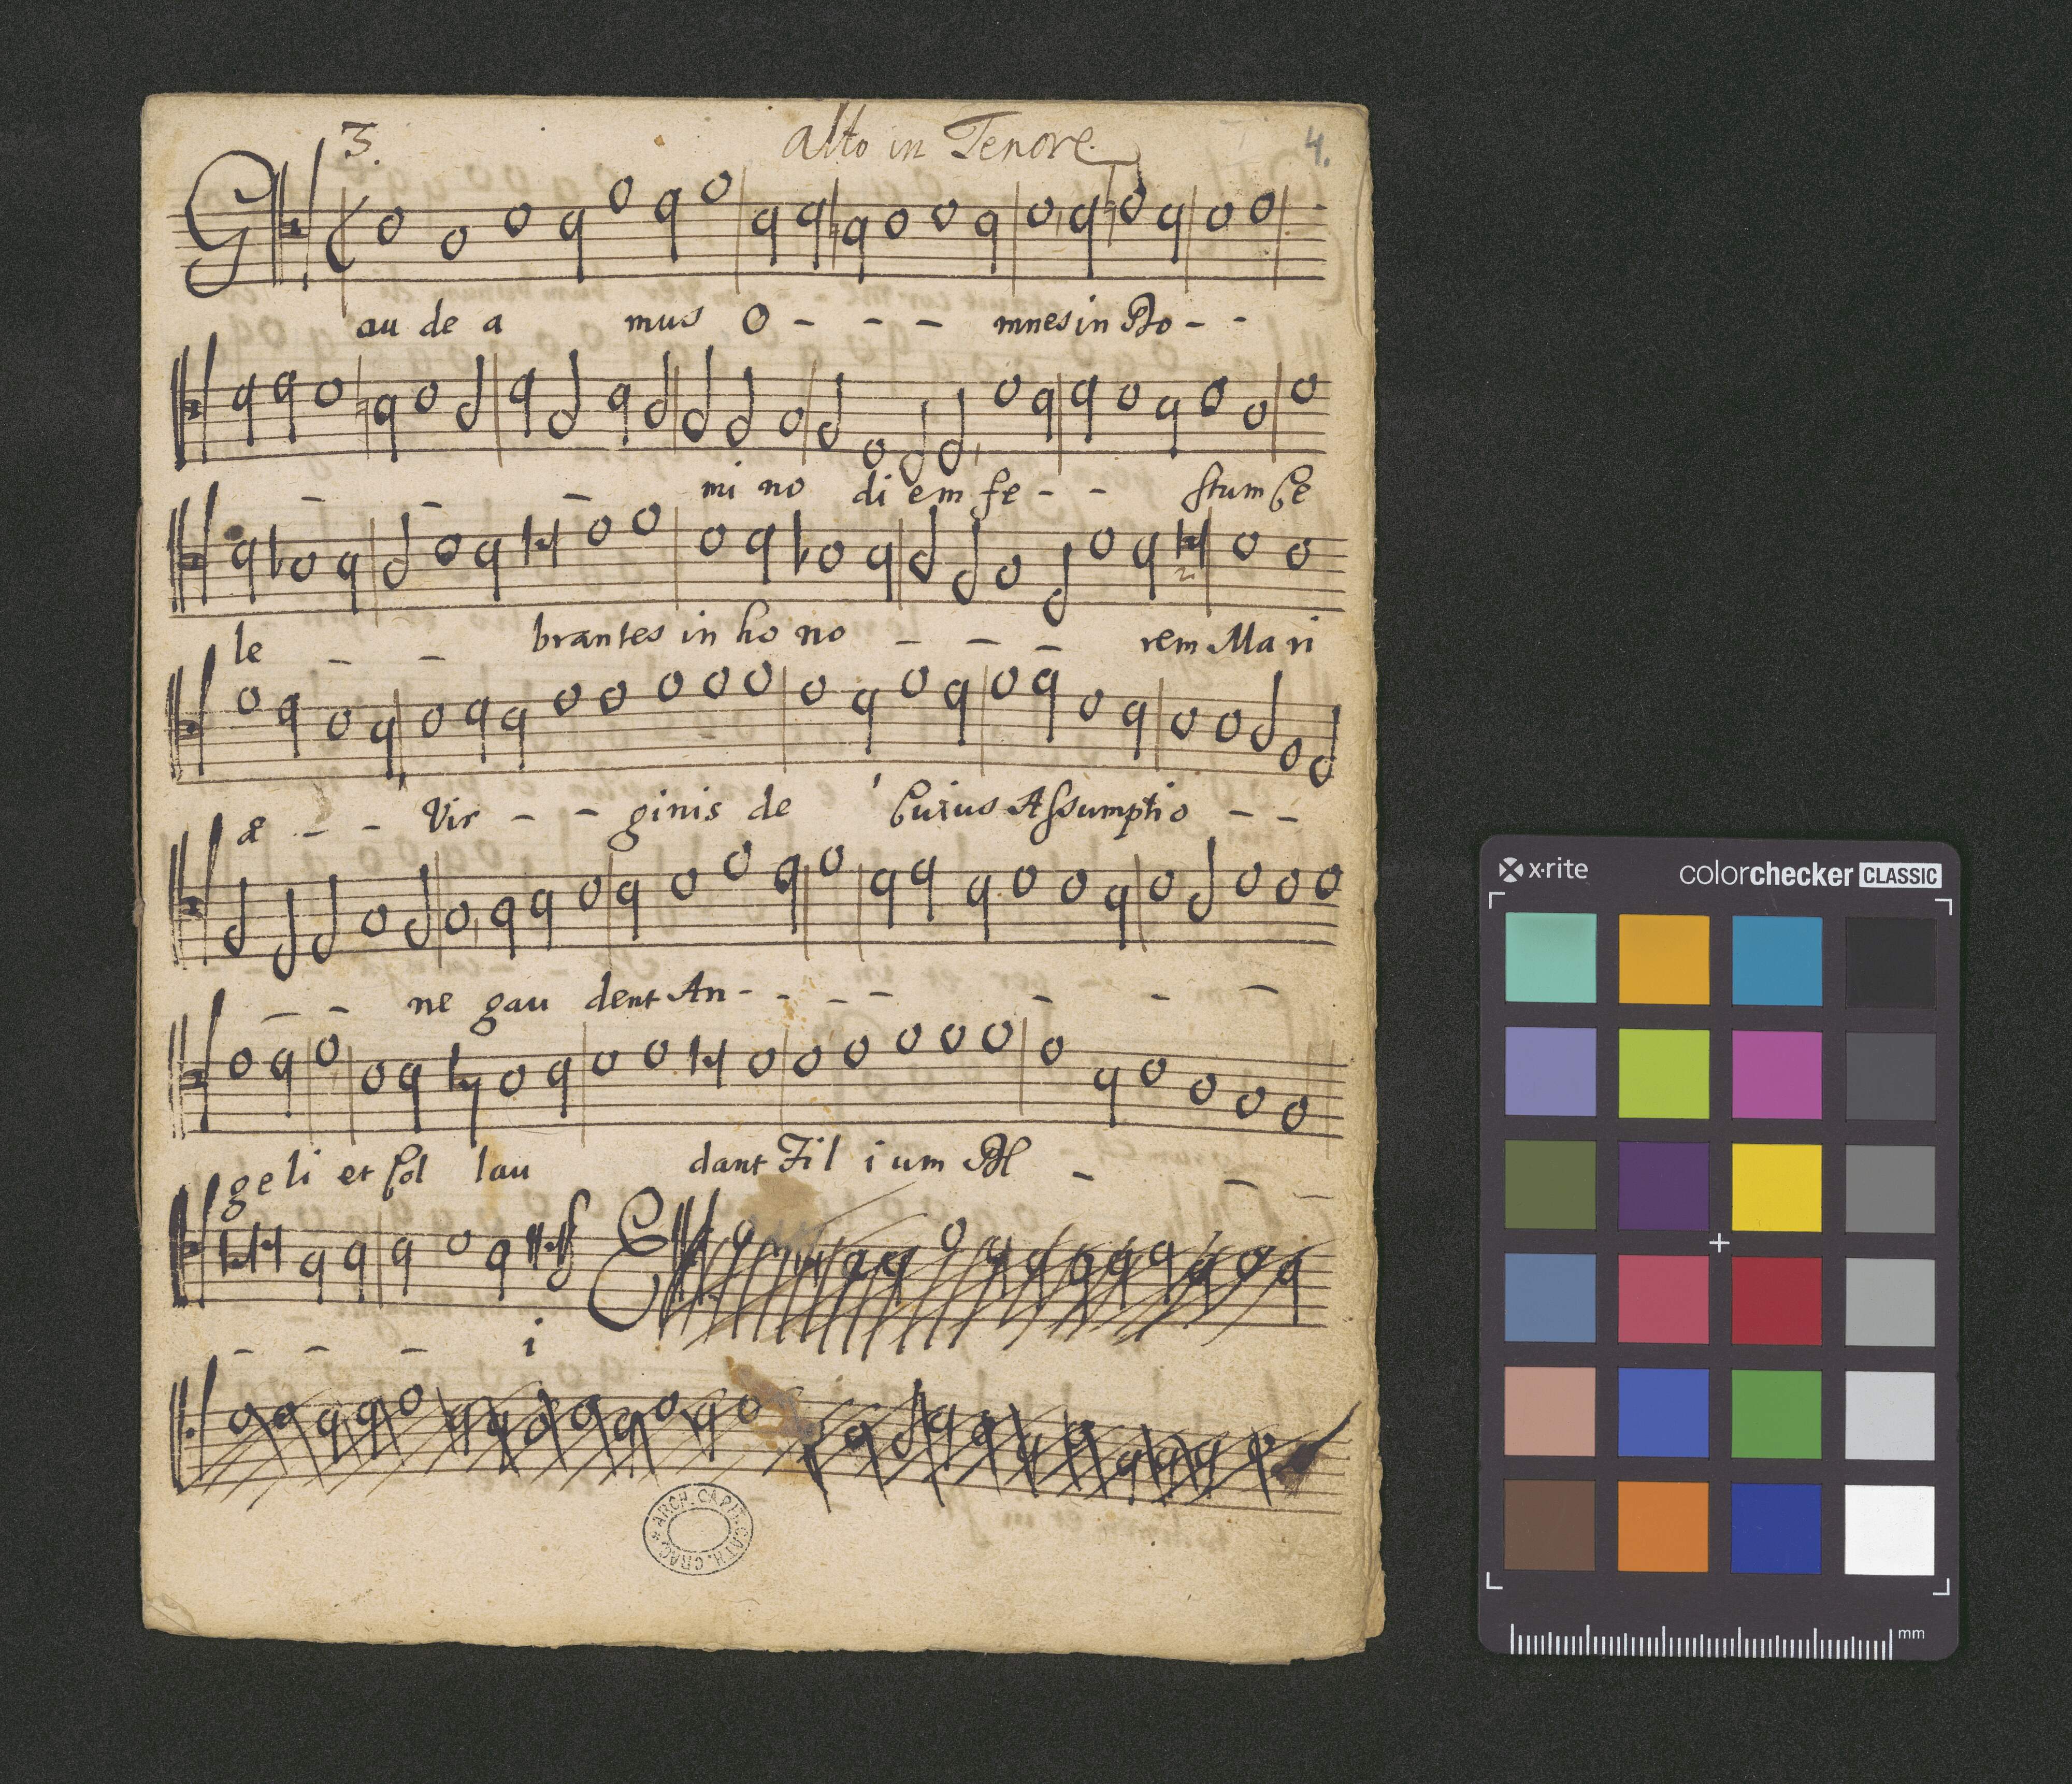 3. alto in Tenore 4.
G
au de a mus O - - - mnes in Do - -
- - - mi no di em fe - - stum Ce
le - - brantes in ho no - - - rem Ma ri
æ - - Vir - - ginis de Cuius Assumptio - -
- - ne gau dent An - - - - - - -
ge li et Col lau dant Fil i um DE - - -
- - - i
E
ARCH. CAPIT. CATH. CRAC.
x·rite colorchecker CLASSIC
mm